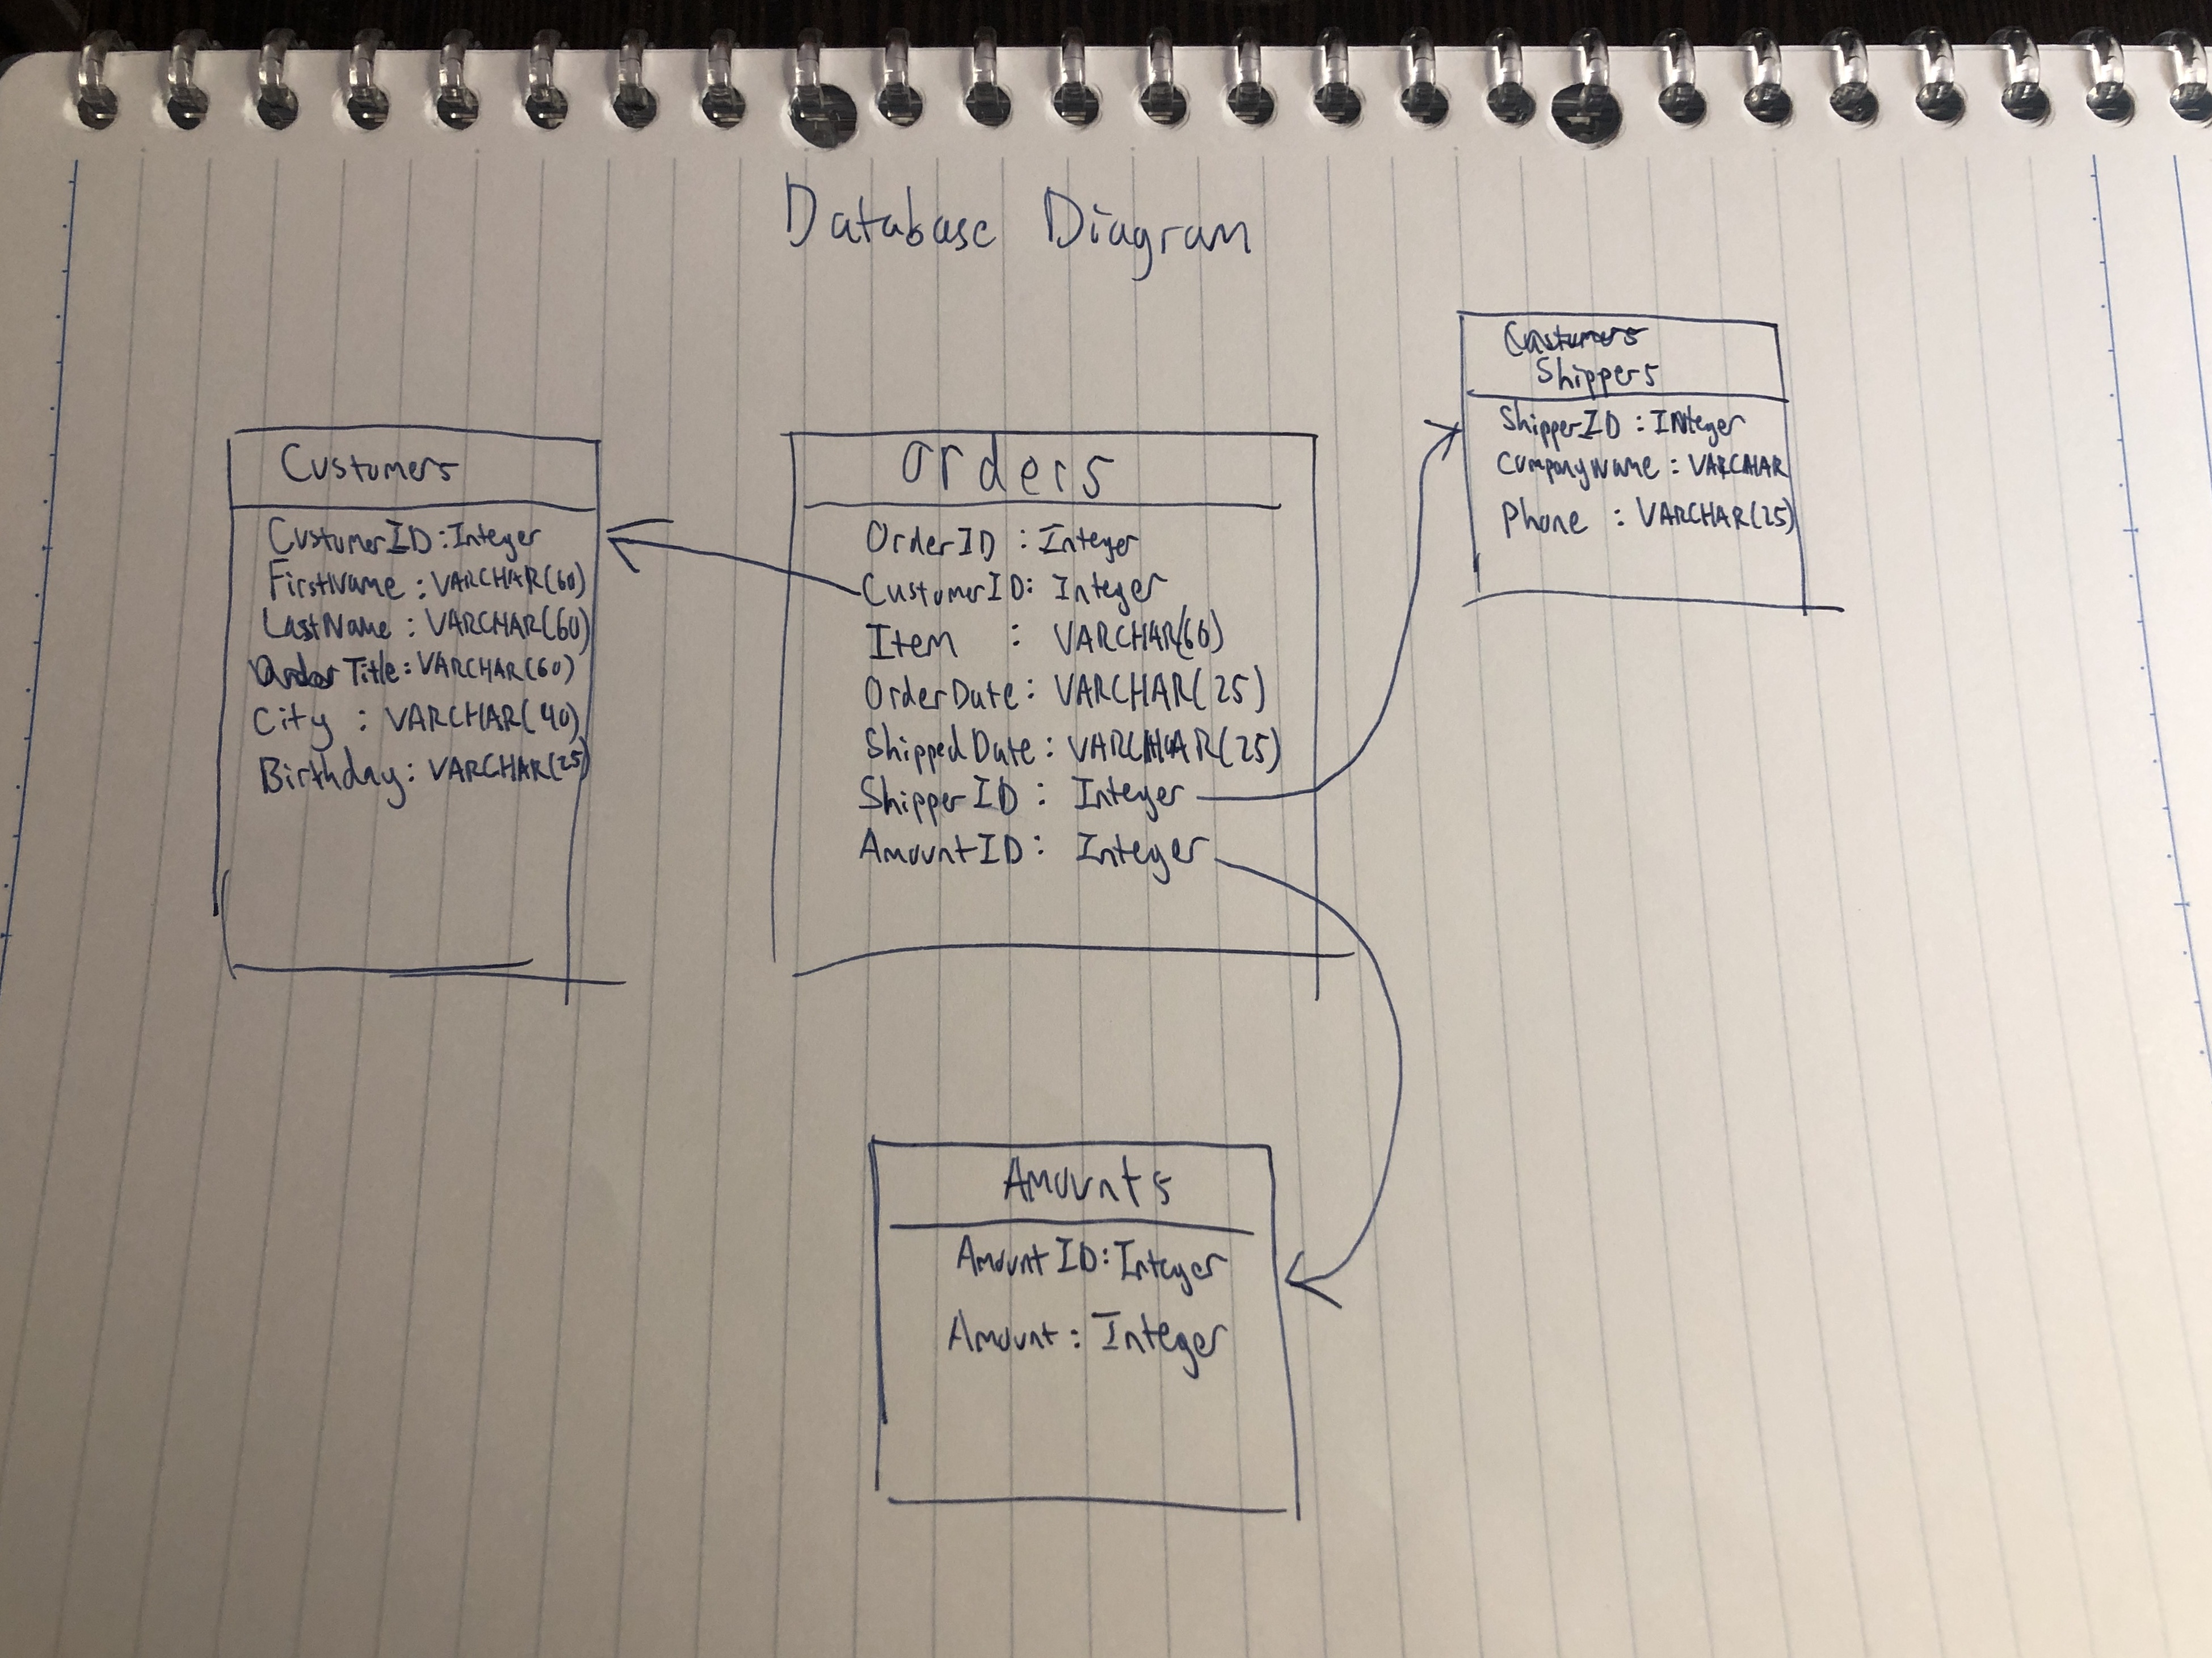 Database Diagram
Customers
CustomerID:Integer
FirstName: VARCHAR(60)
LastName: VARCHAR(60)
Title: VARCHAR(60)
City : VARCHAR(40)
Birthday: VARCHAR(25)
Orders
OrderID : Integer
CustomerID: Integer
Item : VARCHAR(60)
OrderDate: VARCHAR(25)
ShippedDate: VARCHAR(25)
ShipperID: Integer
AmountID: Integer
Customers
Shippers
ShipperID : INteger
CompanyName : VARCHAR
Phone : VARCHAR(25)
Amounts
AmountID:Integer
Amount: Integer